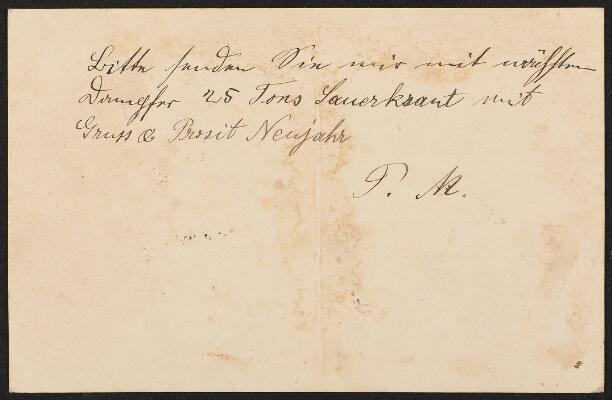 Bitte senden Sie mir mit nächsten
Dampfer 25 Tons Sauerkraut mit
Gruss & Prosit Neujahr
P. M.